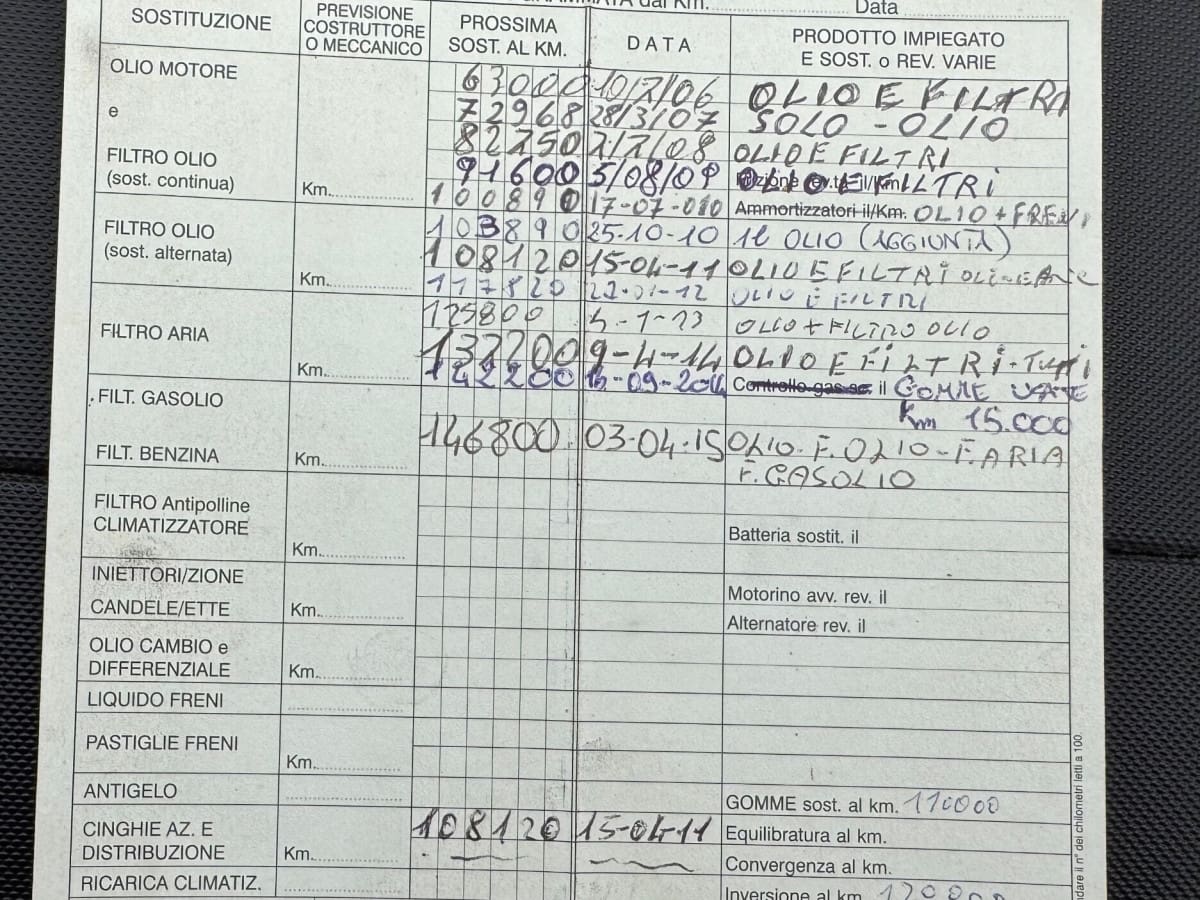 dal Km. Data
SOSTITUZIONE PREVISIONE COSTRUTTORE O MECCANICO PROSSIMA SOST. AL KM. DATA PRODOTTO IMPIEGATO E SOST. o REV. VARIE
OLIO MOTORE 63000 10/7/06 OLIO E FILTRI
e 72968 28/3/07 SOLO - OLIO
82250 2/2/08 OLIO E FILTRI
FILTRO OLIO
(sost. continua) Km. 91600 5/08/09 OLIO E FILTRI
100890 17-07-010 Ammortizzatori il/Km. OLIO + FRENI
FILTRO OLIO 103890 25-10-10 1l OLIO (AGGIUNTA)
(sost. alternata) 108120 15-04-11 OLIO E FILTRI
Km. 117820 OLIO E FILTRI
FILTRO ARIA 125800 OLIO + FILTRO OLIO
132200 9-4-14 OLIO E FILTRI - TUTTI
Km. 142200 Controllo gas sc. il GOMME USATE
FILT. GASOLIO Km 15.000
146800 03-04-15 OLIO - F. OLIO - F. ARIA
FILT. BENZINA Km. F. GASOLIO
FILTRO Antipolline
CLIMATIZZATORE Km. Batteria sostit. il
INIETTORI/ZIONE
Motorino avv. rev. il
CANDELE/ETTE Km. Alternatore rev. il
OLIO CAMBIO e
DIFFERENZIALE Km.
LIQUIDO FRENI
PASTIGLIE FRENI
Km.
ANTIGELO GOMME sost. al km. 110000
CINGHIE AZ. E 108120 15-04-11 Equilibratura al km.
DISTRIBUZIONE Km. Convergenza al km.
RICARICA CLIMATIZ. Inversione al km.
dare il n° dei chilometri letti a 100.